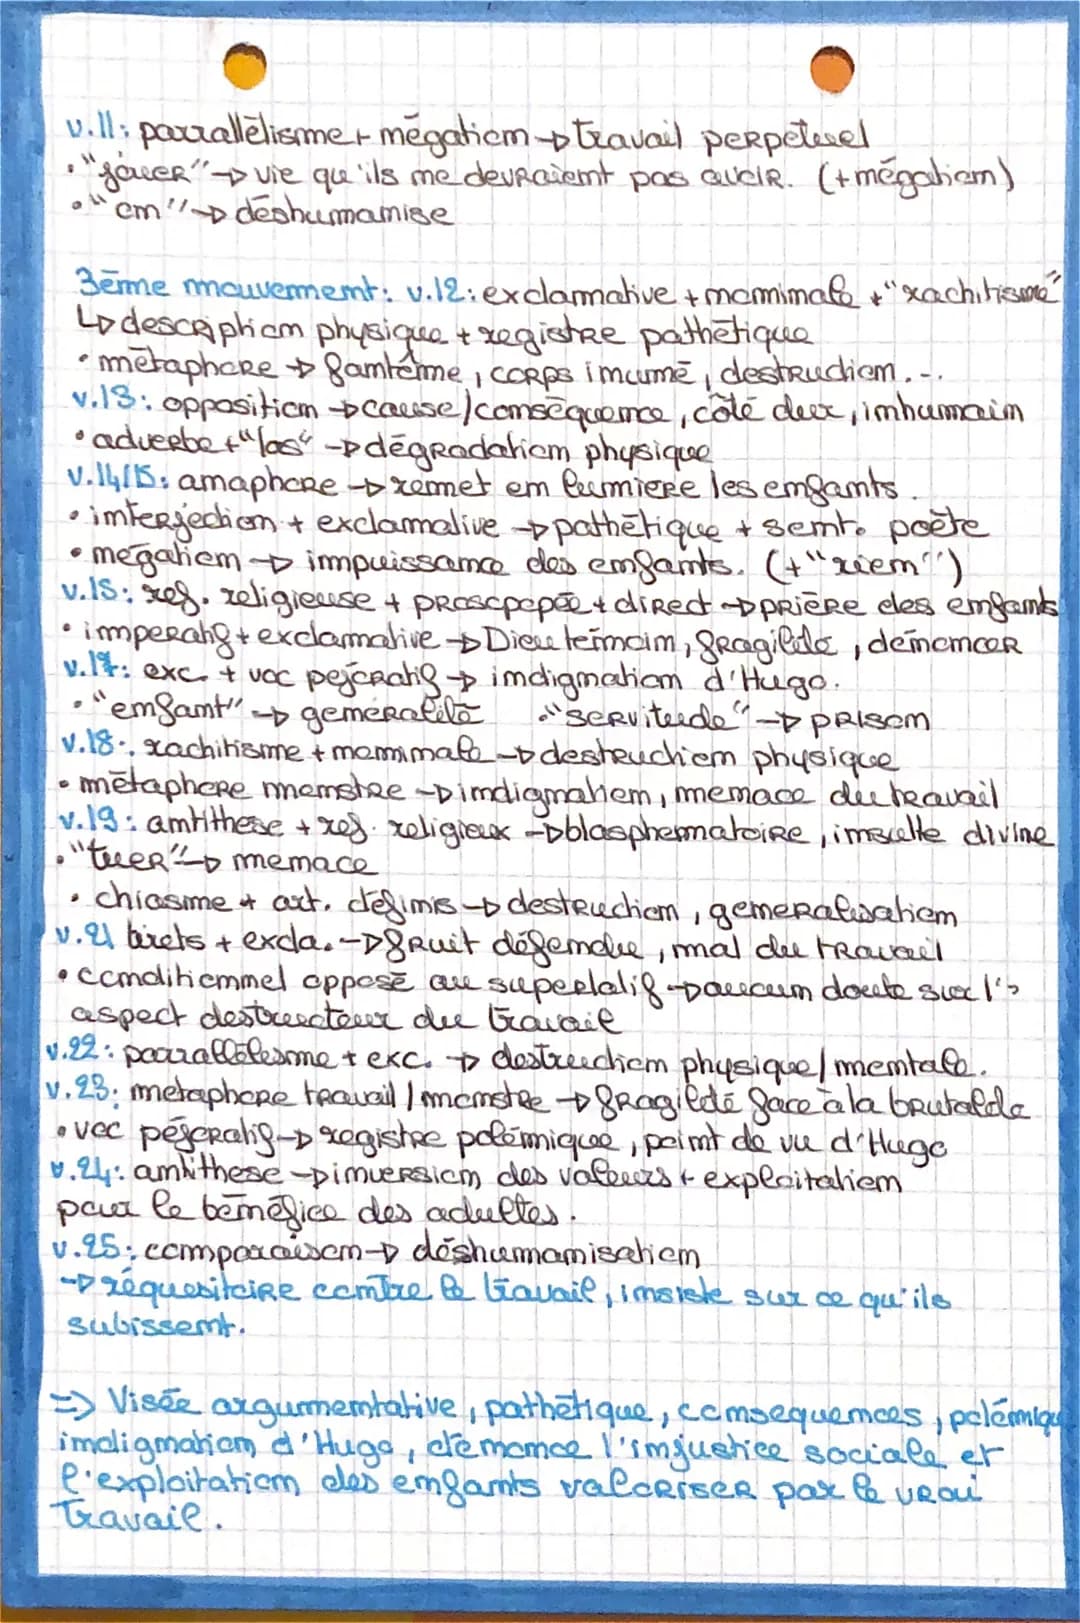 v.11: parrallélisme + négation → travail perpétuel
• "jouer" → vie qu'ils ne devraient pas avoir. (+négation)
• "on" → déshumanise
3ème mouvement: v.12: exclamative + nominale + "rachitisme"
↳ description physique + registre pathétique
• métaphore → fantôme, corps inumé, destruction...
v.13: opposition → cause/conséquence, côté dur, inhumain
• adverbe + "las" → dégradation physique
v.14/15: anaphore → remet en lumière les enfants.
• interjection + exclamative → pathétique + sent. poète
• négation → impuissance des enfants. (+"rien")
v.15: ref. religieuse + prosopopée + direct → prière des enfants
• impératif + exclamative → Dieu témoin, fragilité, dénoncer
v.17: exc. + voc péjoratif → indignation d'Hugo.
• "enfant" → généralité • "servitude" → prison
v.18: rachitisme + nominale → destruction physique
• métaphore monstre → indignation, menace du travail
v.19: antithèse + ref. religieux → blasphematoire, insulte divine
• "tuer" → menace
• chiasme + art. définis → destruction, généralisation
v.21 tirets + excla. → fruit défendu, mal du travail
• conditionnel opposé au superlatif → aucun doute sur l'
aspect destructeur du travail
v.22: parallélesme + exc. → destruction physique/mentale.
v.23: métaphore travail/monstre → fragilité face à la brutalité
• voc péjoratif → registre polémique, point de vu d'Hugo
v.24: antithèse → inversion des valeurs + exploitation
pour le bénéfice des adultes.
v.25: comparaison → déshumanisation
→ réquesitoire contre le travail, insiste sur ce qu'ils
subissent.
=> Visée argumentative, pathétique, conséquences, polémique
indignation d'Hugo, dénonce l'injustice sociale et
l'exploitation des enfants valoriser par le vrai
travail.